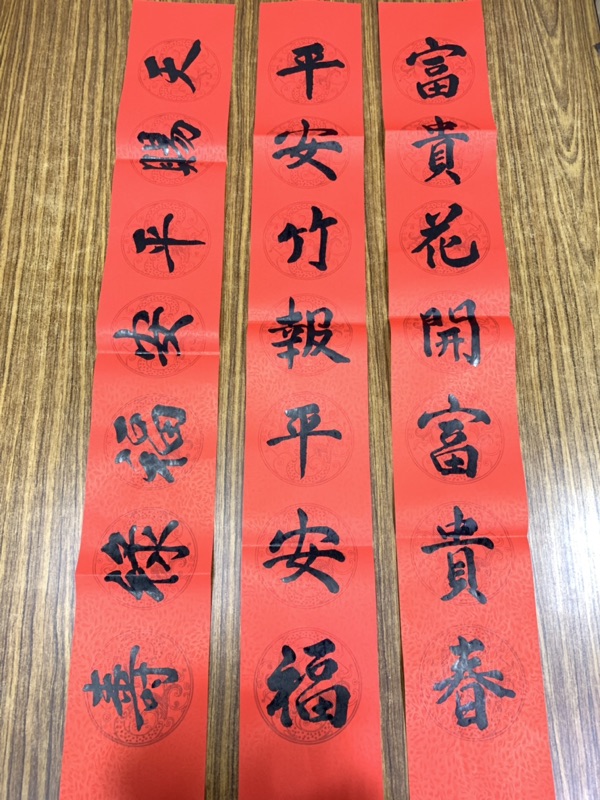 富貴花開富貴春
平安竹報平安福
天賜平安福祿壽